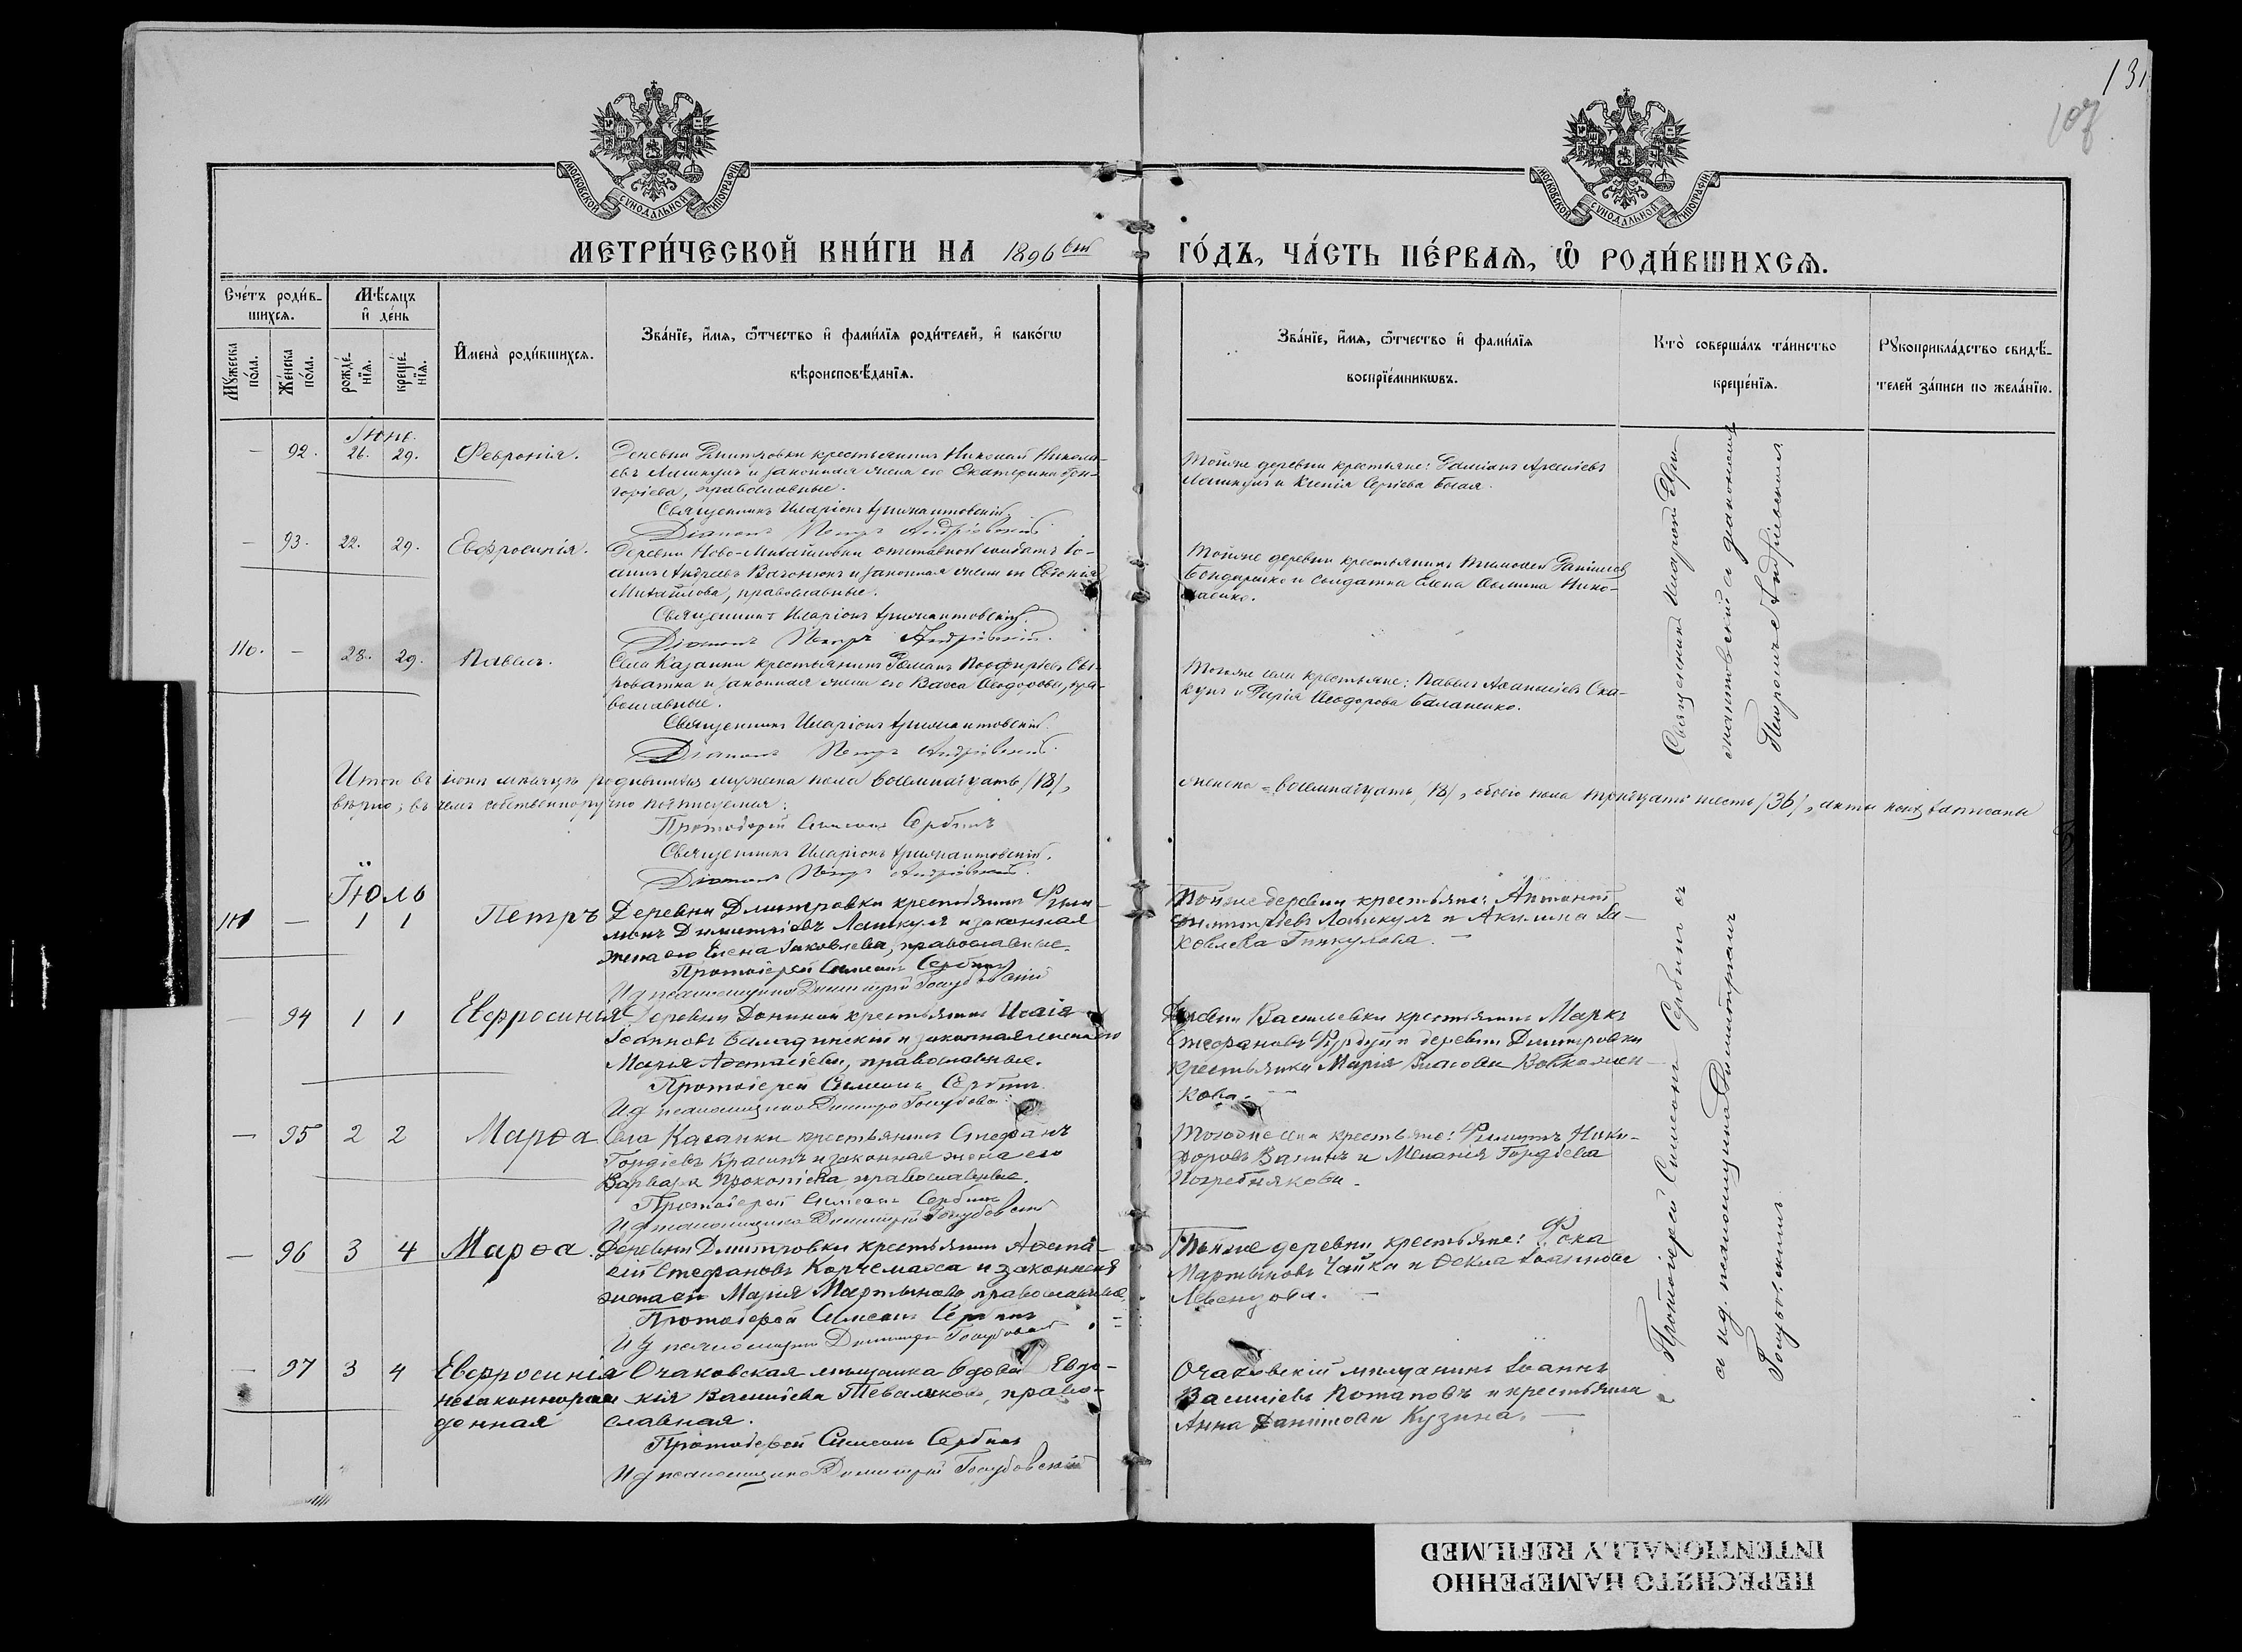 131
107
МОСКОВСКОЙ СѴНОДАЛЬНОЙ ТИПОГРАФІИ
МОСКОВСКОЙ СѴНОДАЛЬНОЙ ТИПОГРАФІИ
МЕТРИ́ЧЕСКОЙ КНИ́ГИ НА 1896 ГО́ДЪ, ЧА́СТЬ ПЕ́РВАѦ, Ѽ РОДИ́ВШИХСѦ.
Сче́тъ роди́в-
шихсѧ.
Мꙋ́жеска по́ла.
Же́нска по́ла.
Мѣ́сѧцъ и҆ де́нь
рожде́-
нїѧ.
креще́-
нїѧ.
И҆мена̀ роди́вшихсѧ.
Зва́нїе, и҆́мѧ, ѻ҆́тчество и҆ фами́лїѧ роди́телей, и҆ како́гѡ
вѣроисповѣ́данїѧ.
Зва́нїе, и҆́мѧ, ѻ҆́тчество и҆ фами́лїѧ
воспрїе́мникѡвъ.
Кто̀ соверша́лъ та́инство
креще́нїѧ.
Рꙋкоприкла́дство свидѣ́-
телей за́писи по жела́нїю.
Іюнь.
— 92. 26. 29. Февронія.
Деревни Димитровки крестьянинъ Николай Никола-
евъ Лашкулъ и законная жена его Екатерина Гри-
горіева, православные.
Священникъ Иларіонъ
Діаконъ Петръ Андріевскій.
Тойже деревни крестьяне: Даміанъ
Лашкулъ и Ксенія Сергіева Белая.
— 93. 22. 29. Евфросинія.
Деревни Ново-Михайловки отставной солдатъ Іо-
аннъ Андреевъ и законная жена его Евдокія
Михайлова, православные.
Священникъ Иларіонъ
Діаконъ Петръ Андріевскій.
Тойже деревни крестьянинъ Даніилов
Бондаренко и солдатка Елена Нико-
лаенко.
110. — 28. 29. Павелъ.
Села Казанки крестьянинъ Романъ Порфиріевъ Сы-
роватка и законная жена его Васса Ѳеодорова, пра-
вославные.
Священникъ Иларіонъ
Діаконъ Петръ Андріевскій.
Тогоже села крестьяне: Павелъ Аѳанасіевъ Ска-
кунъ и Дарія Ѳеодорова Баланенко.
Священникъ Иларіонъ
съ діакономъ
Петромъ Андріевскимъ
Итого въ іюнѣ мѣсяцѣ родившихся мужеска пола восемнадцать /18/, женска = восемнадцать /18/, обоего пола тридцать шесть /36/, акты записаны
вѣрно; въ чемъ собственноручно подписуемся:
Протоіерей Симеонъ Сербинъ
Священникъ Иларіонъ
Діаконъ Петръ Андріевскій.
Іюль
111 — 1 1 Петръ
Деревни Димитровки крестьянинъ Фили-
монъ Димитріевъ Лашкулъ и законная
жена его Елена Іаковлева, православные.
Протоіерей Симеонъ Сербинъ
И д псаломщика Димитрій Голубовскій
Тойже деревни крестьяне: Антоній
Димитріевъ Лашкулъ и Акилина Іа-
ковлева Гинкулова. —
— 94 1 1 Евфросинія
Деревни крестьянинъ Исаія
Іоанновъ и законная жена его
Марія Аѳанасіева, православные.
Протоіерей Симеонъ Сербинъ
И д псаломщика Димитрій Голубовскій
Деревни Васильевки крестьянинъ Маркъ
Стефановъ и деревни Димитровки
крестьянка Марія Власова
кова. —
— 95 2 2 Марѳа
Села Казанки крестьянинъ Стефанъ
Гордіевъ Красинъ и законная жена его
Варвара Прокопіева, православные.
Протоіерей Симеонъ Сербинъ
И д псаломщика Димитрій Голубовскій
Тогоже села крестьяне: Филиппъ Ники-
форовъ и Меланія Гордіева
Погребнякова.
— 96 3 4 Марѳа.
Деревни Димитровки крестьянинъ Аѳана-
сій Стефановъ Корчемаха и законная
жена его Марія Мартынова православные.
Протоіерей Симеонъ Сербинъ
И д псаломщика Димитрій Голубовскій
Тойже деревни крестьяне: Фока
Мартыновъ Чайка и Ѳекла Іоаннова
— 97 3 4 Евфросинія
незаконнорож
денная
Очаковская мѣщанка вдова Евдо-
кія Васильева православная.
Протоіерей Симеонъ Сербинъ
И д псаломщика Димитрій Голубовскій
Очаковскій мѣщанинъ Іоаннъ
Васильевъ Потаповъ и крестьянка
Анна Даніилова Кузина. —
Протоіерей Симеонъ Сербинъ съ
и д. псаломщика Димитріемъ
Голубовскимъ
ПЕРЕСНЯТО НАМЕРЕННО
INTENTIONALLY REFILMED